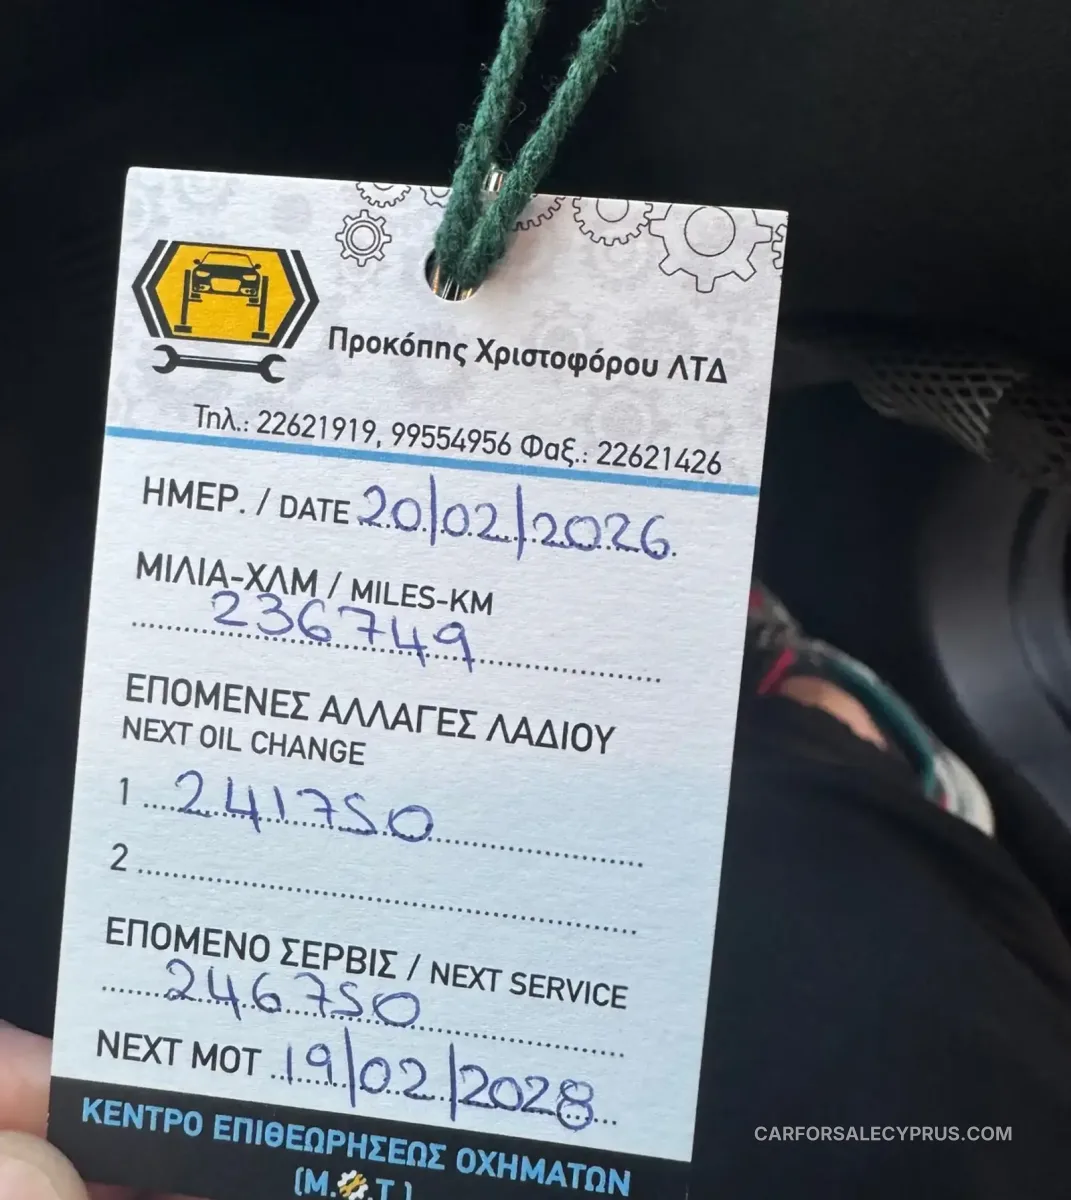 Προκόπης Χριστοφόρου ΛΤΔ
Τηλ.: 22621919, 99554956 Φαξ.: 22621426
ΗΜΕΡ. / DATE 20/02/2026
ΜΙΛΙΑ-ΧΛΜ / MILES-KM
236749
ΕΠΟΜΕΝΕΣ ΑΛΛΑΓΕΣ ΛΑΔΙΟΥ
NEXT OIL CHANGE
1 241750
2
ΕΠΟΜΕΝΟ ΣΕΡΒΙΣ / NEXT SERVICE
246750
NEXT MOT 19/02/2028
ΚΕΝΤΡΟ ΕΠΙΘΕΩΡΗΣΕΩΣ ΟΧΗΜΑΤΩΝ
(M.O.T.)
CARFORSALECYPRUS.COM